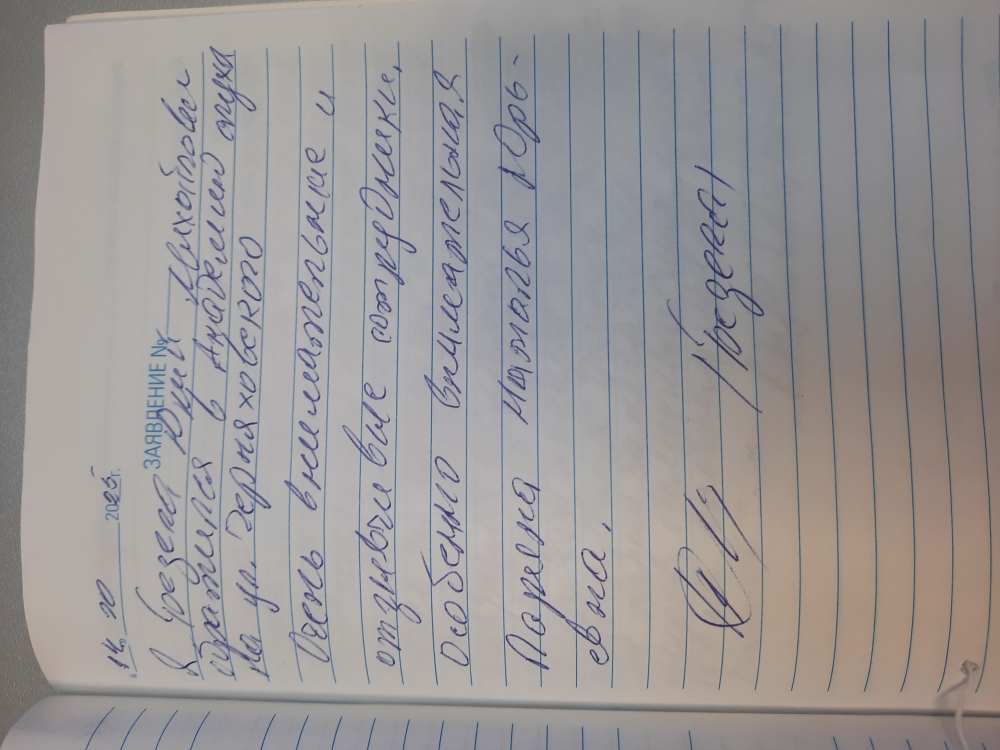 14 10 2025г.
ЗАЯВЛЕНИЕ №
Я Грезент Юрий Михайлович
обратился в Академию слуха
на ул. Черняховского
Очень внимательные и
отзывчивые сотрудники,
Особенно внимательная
Ларена Наталья Юрь-
евна.